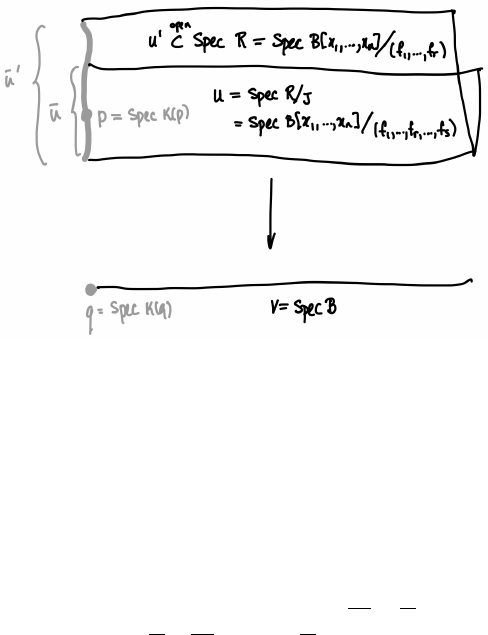 u' ⊂ Spec R = Spec B[x₁,...,xₙ]/(f₁,...,fᵣ)
open
ū'
ū
p = Spec K(p)
u = Spec R/J
= Spec B[x₁,...,xₙ]/(f₁,...,fᵣ,...,fₛ)
q = Spec K(q)
V = Spec B